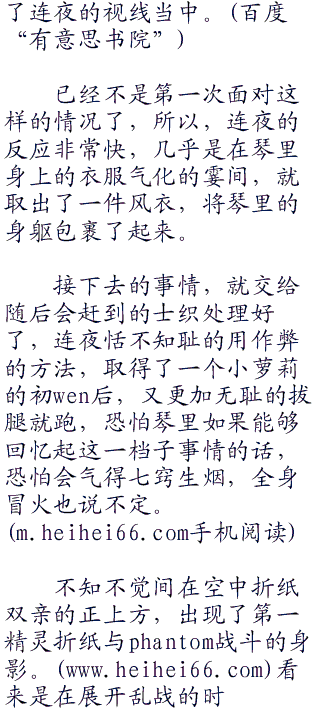 了连夜的视线当中。(百度
“有意思书院”)
已经不是第一次面对这
样的情况了，所以，连夜的
反应非常快，几乎是在琴里
身上的衣服气化的霎间，就
取出了一件风衣，将琴里的
身躯包裹了起来。
接下去的事情，就交给
随后会赶到的士织处理好
了，连夜恬不知耻的用作弊
的方法，取得了一个小萝莉
的初wen后，又更加无耻的拔
腿就跑，恐怕琴里如果能够
回忆起这一档子事情的话，
恐怕会气得七窍生烟，全身
冒火也说不定。
(m.heihei66.com手机阅读)
不知不觉间在空中折纸
双亲的正上方，出现了第一
精灵折纸与phantom战斗的身
影。(www.heihei66.com)看
来是在展开乱战的时